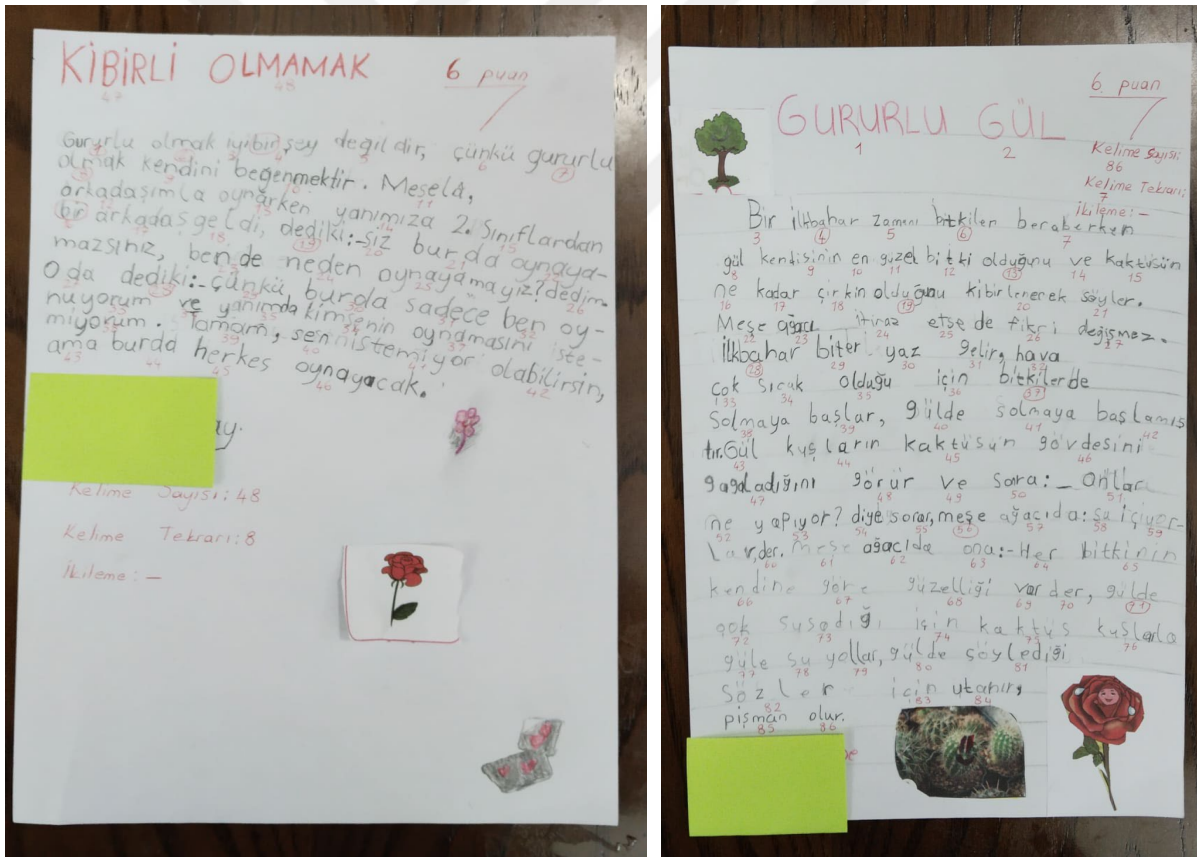 KİBİRLİ OLMAMAK
6 puan
Gururlu olmak iyi bir şey değildir, çünkü gururlu
olmak kendini beğenmektir. Meselâ,
arkadaşımla oynarken yanımıza 2. Sınıflardan
bir arkadaş geldi, dediki:-Siz burda oynaya-
mazsınız, bende neden oynayamayız? dedim.
O da dediki:-çünkü burda sadece ben oy-
nuyorum ve yanımda kimsenin oynamasını iste-
miyorum. Tamam, sen istemiyor olabilirsin,
ama burda herkes oynayacak.
ay.
Kelime Sayısı: 48
Kelime Tekrarı: 8
İkileme: -
6 puan
GURURLU GÜL
Kelime Sayısı:
86
Kelime Tekrarı:
7
İkileme: -
Bir ilkbahar zamanı bitkiler beraberken
gül kendisinin en güzel bitki olduğunu ve kaktüsün
ne kadar çirkin olduğunu kibirlenerek söyler.
Meşe ağacı itiraz etse de fikri değişmez.
İlkbahar biter yaz gelir, hava
çok sıcak olduğu için bitkilerde
Solmaya başlar, gülde solmaya başlamış
tır. Gül kuşların kaktüsün gövdesini
gagaladığını görür ve sorar:- Onlar
ne yapıyor? diye sorar, meşe ağacıda: su içiyor-
lar, der. Meşe ağacıda ona:- Her bitkinin
kendine göre güzelliği var der, gülde
çok susadığı için kaktüs kuşlarla
güle su yollar, gülde söylediği
sözler için utanır,
pişman olur.